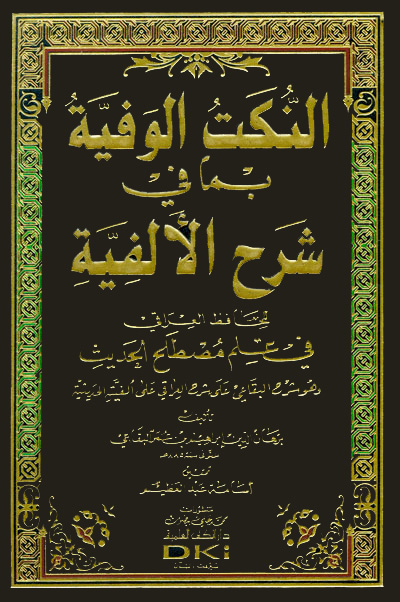 النُّكَتُ الوَفِيَّةُ
بِمَا فِي
شَرْحِ الأَلْفِيَّةِ
للحافظ العراقي
في عِلْمِ مُصْطَلَحِ الحَدِيثِ
وهو شرح البقاعي على شرح العراقي على ألفيته الحديثية
تأليف
برهان الدين إبراهيم بن عمر البقاعي
المتوفى سنة ٨٨٥هـ
تحقيق
أسامة عبد العظيم
منشورات
محمد علي بيضون
دار الكتب العلمية
DKi
بيروت - لبنان